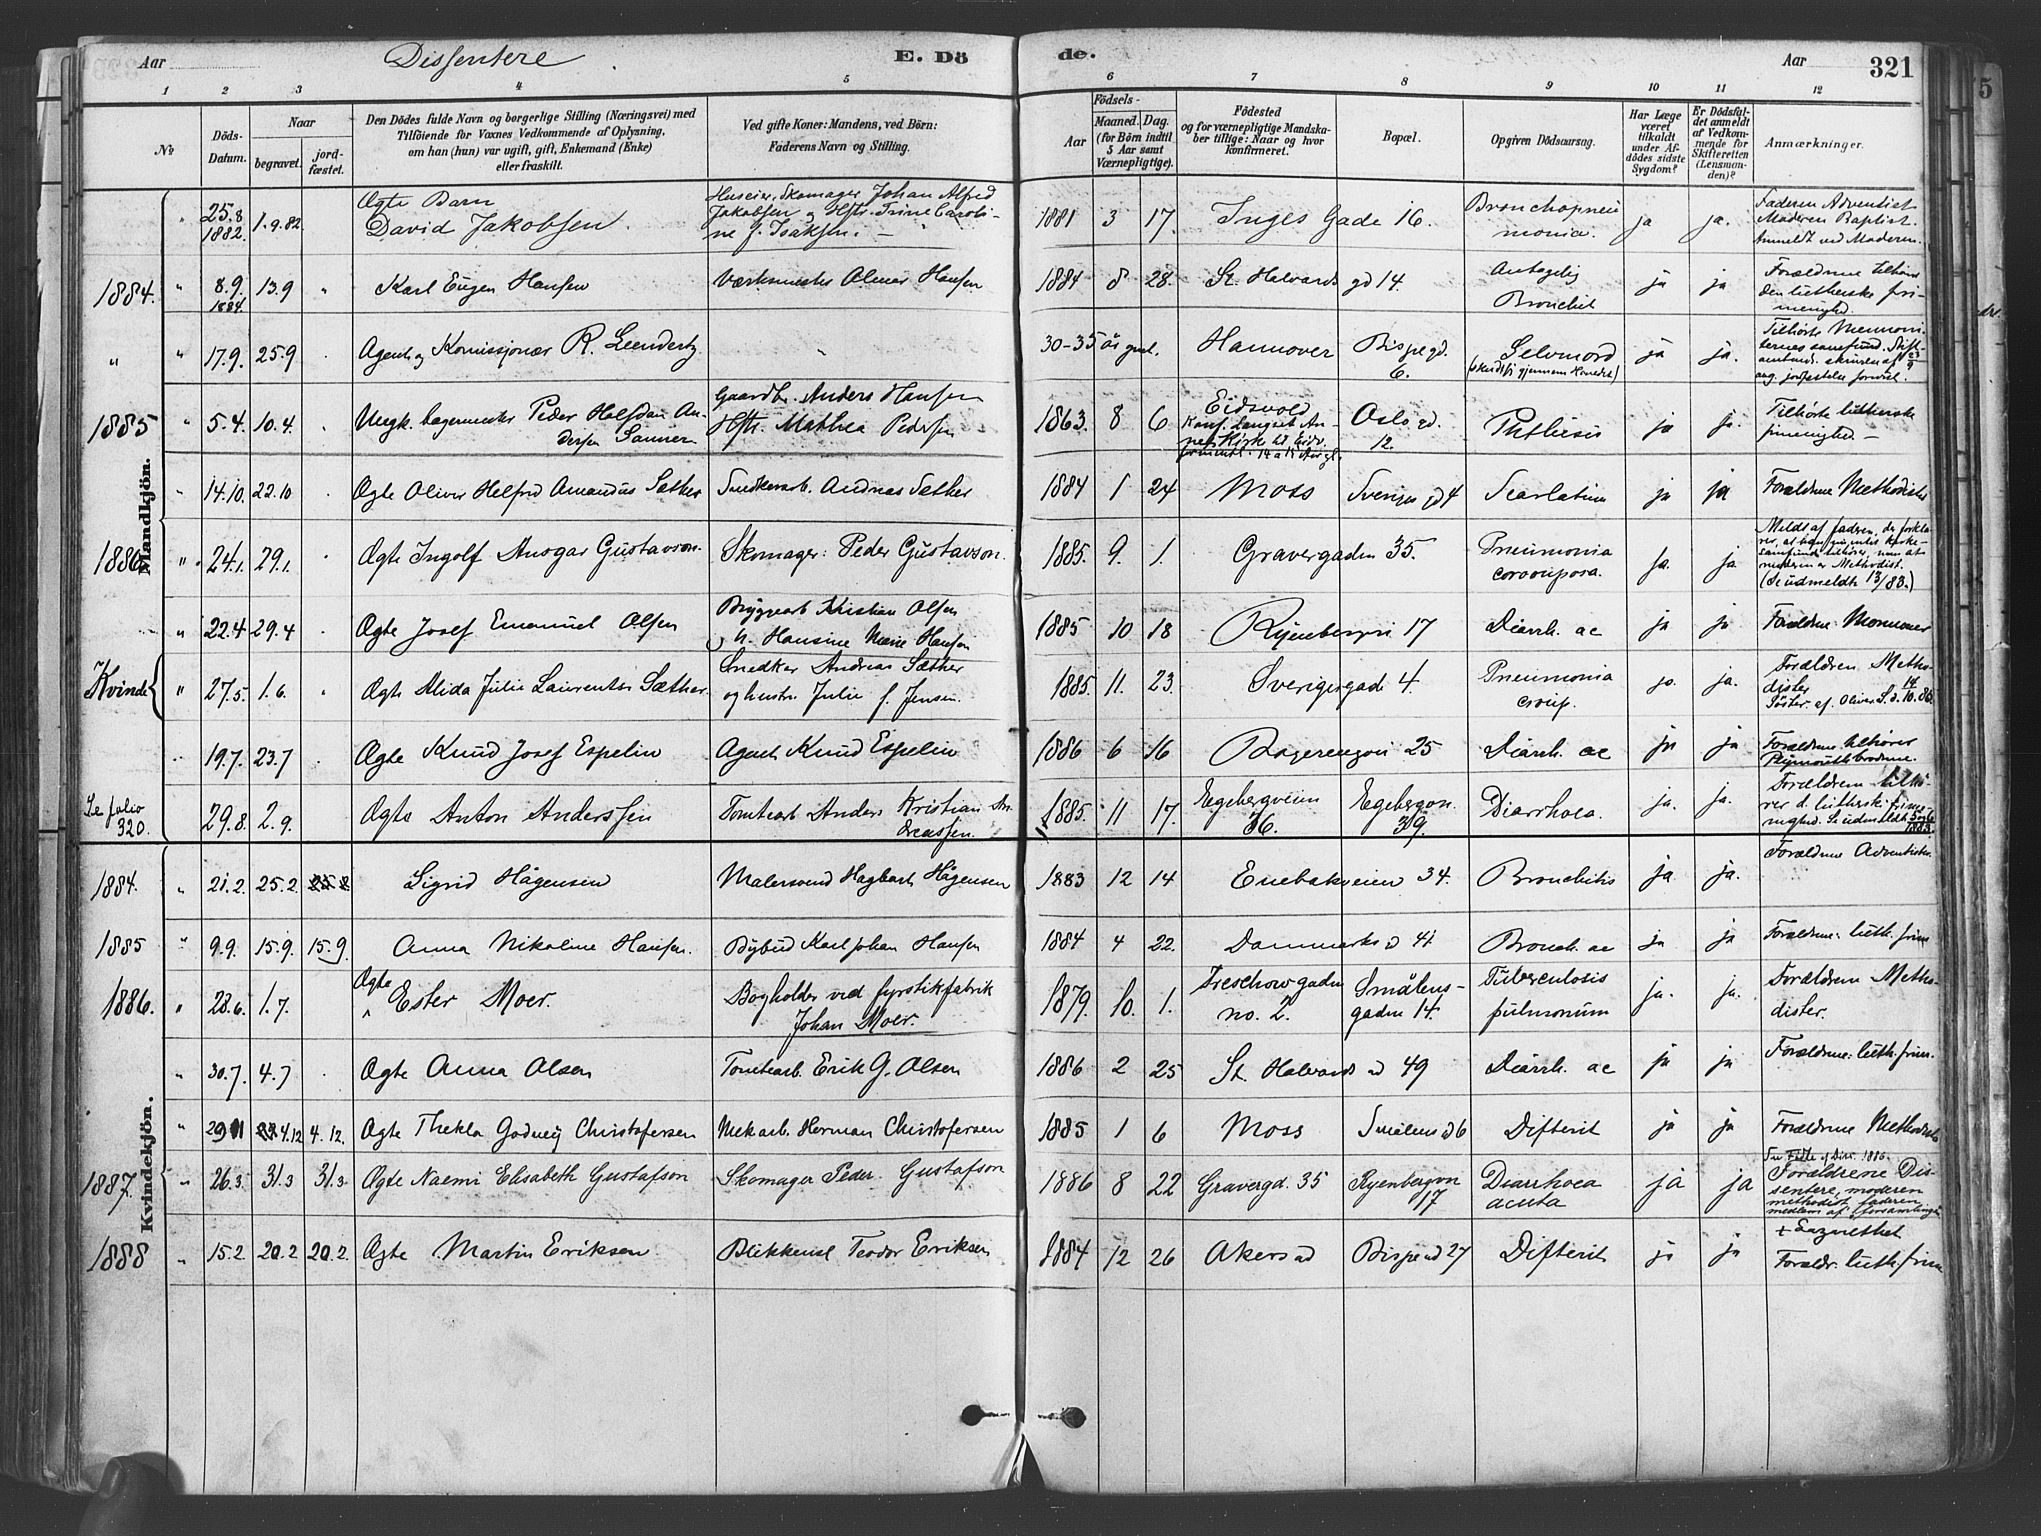 Aar Dissentere E. Dö de. Aar 321
1 2 3 4 5 6 7 8 9 10 11 12
No
Döds-Datum.
Naar
begravet.
jordfæstet.
Den Dödes fulde Navn og borgerlige Stilling (Næringsvei) med
Tilföiende for Voxnes Vedkommende af Oplysning,
om han (hun) var ugift, gift, Enkemand (Enke)
eller fraskilt.
Ved gifte Koner: Mandens, ved Börn:
Faderens Navn og Stilling.
Födsels-
Aar
Maaned. Dag.
(for Börn indtil
5 Aar samt
Værnepligtige).
Födested
og for værnepligtige Mandska-
ber tillige: Naar og hvor
konfirmeret.
Bopæl.
Opgiven Dödsaarsag.
Har Læge
været
tilkaldt
under Af-
dödes sidste
Sygdom?
Er Dödsfal-
det anmeldt
af Vedkom-
mende for
Skifteretten
(Lensman-
den)?
Anmærkninger.
Mandkjön.
" 25.8 1882 1.9.82 Ægte Barn David Jakobsen Huseier, Skomager Johan Alfred Jakobsen og Hstr. Trine Caroline f. Isaksen. 1881 3 17. Inges Gade 16. Bronchopneumonia. ja ja. Faderen Adventist Moderen Baptist. Anmeldt ved Moderen.
1884. " 8.9. 1884. 13.9 " Karl Eugen Hansen Værksmester Olmar Hansen 1884 8 28. St. Halvards gd 14. Bronchit ja ja Forældrene tilhøre den lutherske frimenighed.
" " 17.9. 25.9 . Agent og Komissjonær R. Leendertz " 30-35 år gml. Hannover Bispegd. 6. Selvmord (skudt sig gjennem Hovedet) ja ja. Tilhørte Mennoniternes samfund.
1885 " 5.4. 10.4. . Peder Halfdan Andersen Sanner Gaardbr. Anders Hansen Hstr. Mathea Pedersen 1863. 8 6 Eidsvold Oslo gd. 12. Phthisis ja ja. Tilhørte lutherske frimenighed.
" 14.10. 22.10 . Ægte Oliver Helfred Amandus Sæther Snedkerarb. Andreas Sæther 1884 1 24 Moss Sveriges gd 4 Scarlatina ja ja Forældrene Methodister
1886 " 24.1. 29.1 . Ægte Ingolf Ansgar Gustavson. Skomager: Peder Gustavson. 1885. 9. 1. Gravergaden 35. Pneumonia ja. ja
" 22.4 29.4 . Ægte Josef Emanuel Olsen Bryggearb Kristian Olsen og h. Hansine Marie Hansen 1885 10 18 Ryenbergvn 17 Diarrh. ac ja ja Forældrene Mormoner
Kvinde " 27.5. 1.6. " Ægte Alida Julie Laurentse Sæther. Snedker Andreas Sæther og hustr. Julie f. Jensen. 1885. 11. 23. Sverigesgade 4. Pneumonia croup. ja. ja. Forældrene Methodister Søster af Oliver S. d. 14/10. 85
19.7. 23.7 Ægte Knud Josef Espelin Agent Knud Espelin 1886 6 16 Bagerengvn 25 Diarrh. ac ja ja Forældrene tilhører Plymouthbrødrene.
Se folio 320. 29.8. 2.9. Ægte Anton Anderssen Tomtearb Anders Kristian Andreassen. 1885. 11 17. Egebergveien 36. Egebergvn. 39. Diarrhoea. ja. ja.
Kvindekjön.
1884. " 21.2. 25.2. 25.2 Sigrid Hågensen Malersvend Hagbart Hågensen 1883 12 14 Enebakveien 34. Bronchitis ja ja. Forældrene Adventister.
1885 " 9.9. 15.9. 15.9. Anna Nikoline Hansen. Bybud Karl Johan Hansen 1884 4 22. Danmarks gd 41. Bronch. ac ja ja Forældrene: luth. frim
1886. " 28.6. 1.7. Ægte Ester Moer. Bogholder ved fyrstikfabrik Johan Moer. 1879. 10. 1. Treschowgaden no. 2. Smålensgaden 14. Tuberculosis pulmonum ja. ja. Forældrene Methodister.
" 30.7. 4.7 . Ægte Anna Olsen Tomtearb. Erik G. Olsen 1886 2 25 St. Halvards gd 49 Diarrh. ac ja ja Forældrene: luth. frim.
" 29 11 4.12 4.12. Ægte Thekla Godney Christofersen Mek arb. Herman Christofersen 1885 1 6 Moss Smålens gd 6 Difterit ja ja Forældrene Methodister
1887. " 26.3. 31.3 31.3 Ægte Naemi Elisabeth Gustafson Skomager Peder Gustafson 1886 8 22 Gravergd. 35 Ryenbergvn 17 Diarrhoea acuta ja ja Forældrene Dissentere, moderen methodist, faderen medlem af forsamlingen
1888 " 15.2. 20.2 20.2. Ægte Martin Eriksen Blikkensl Teodor Eriksen 1884 12 26 Akers gd Bispe gd 27 Difterit ja ja + Lazarethet Forældr. luth. frim